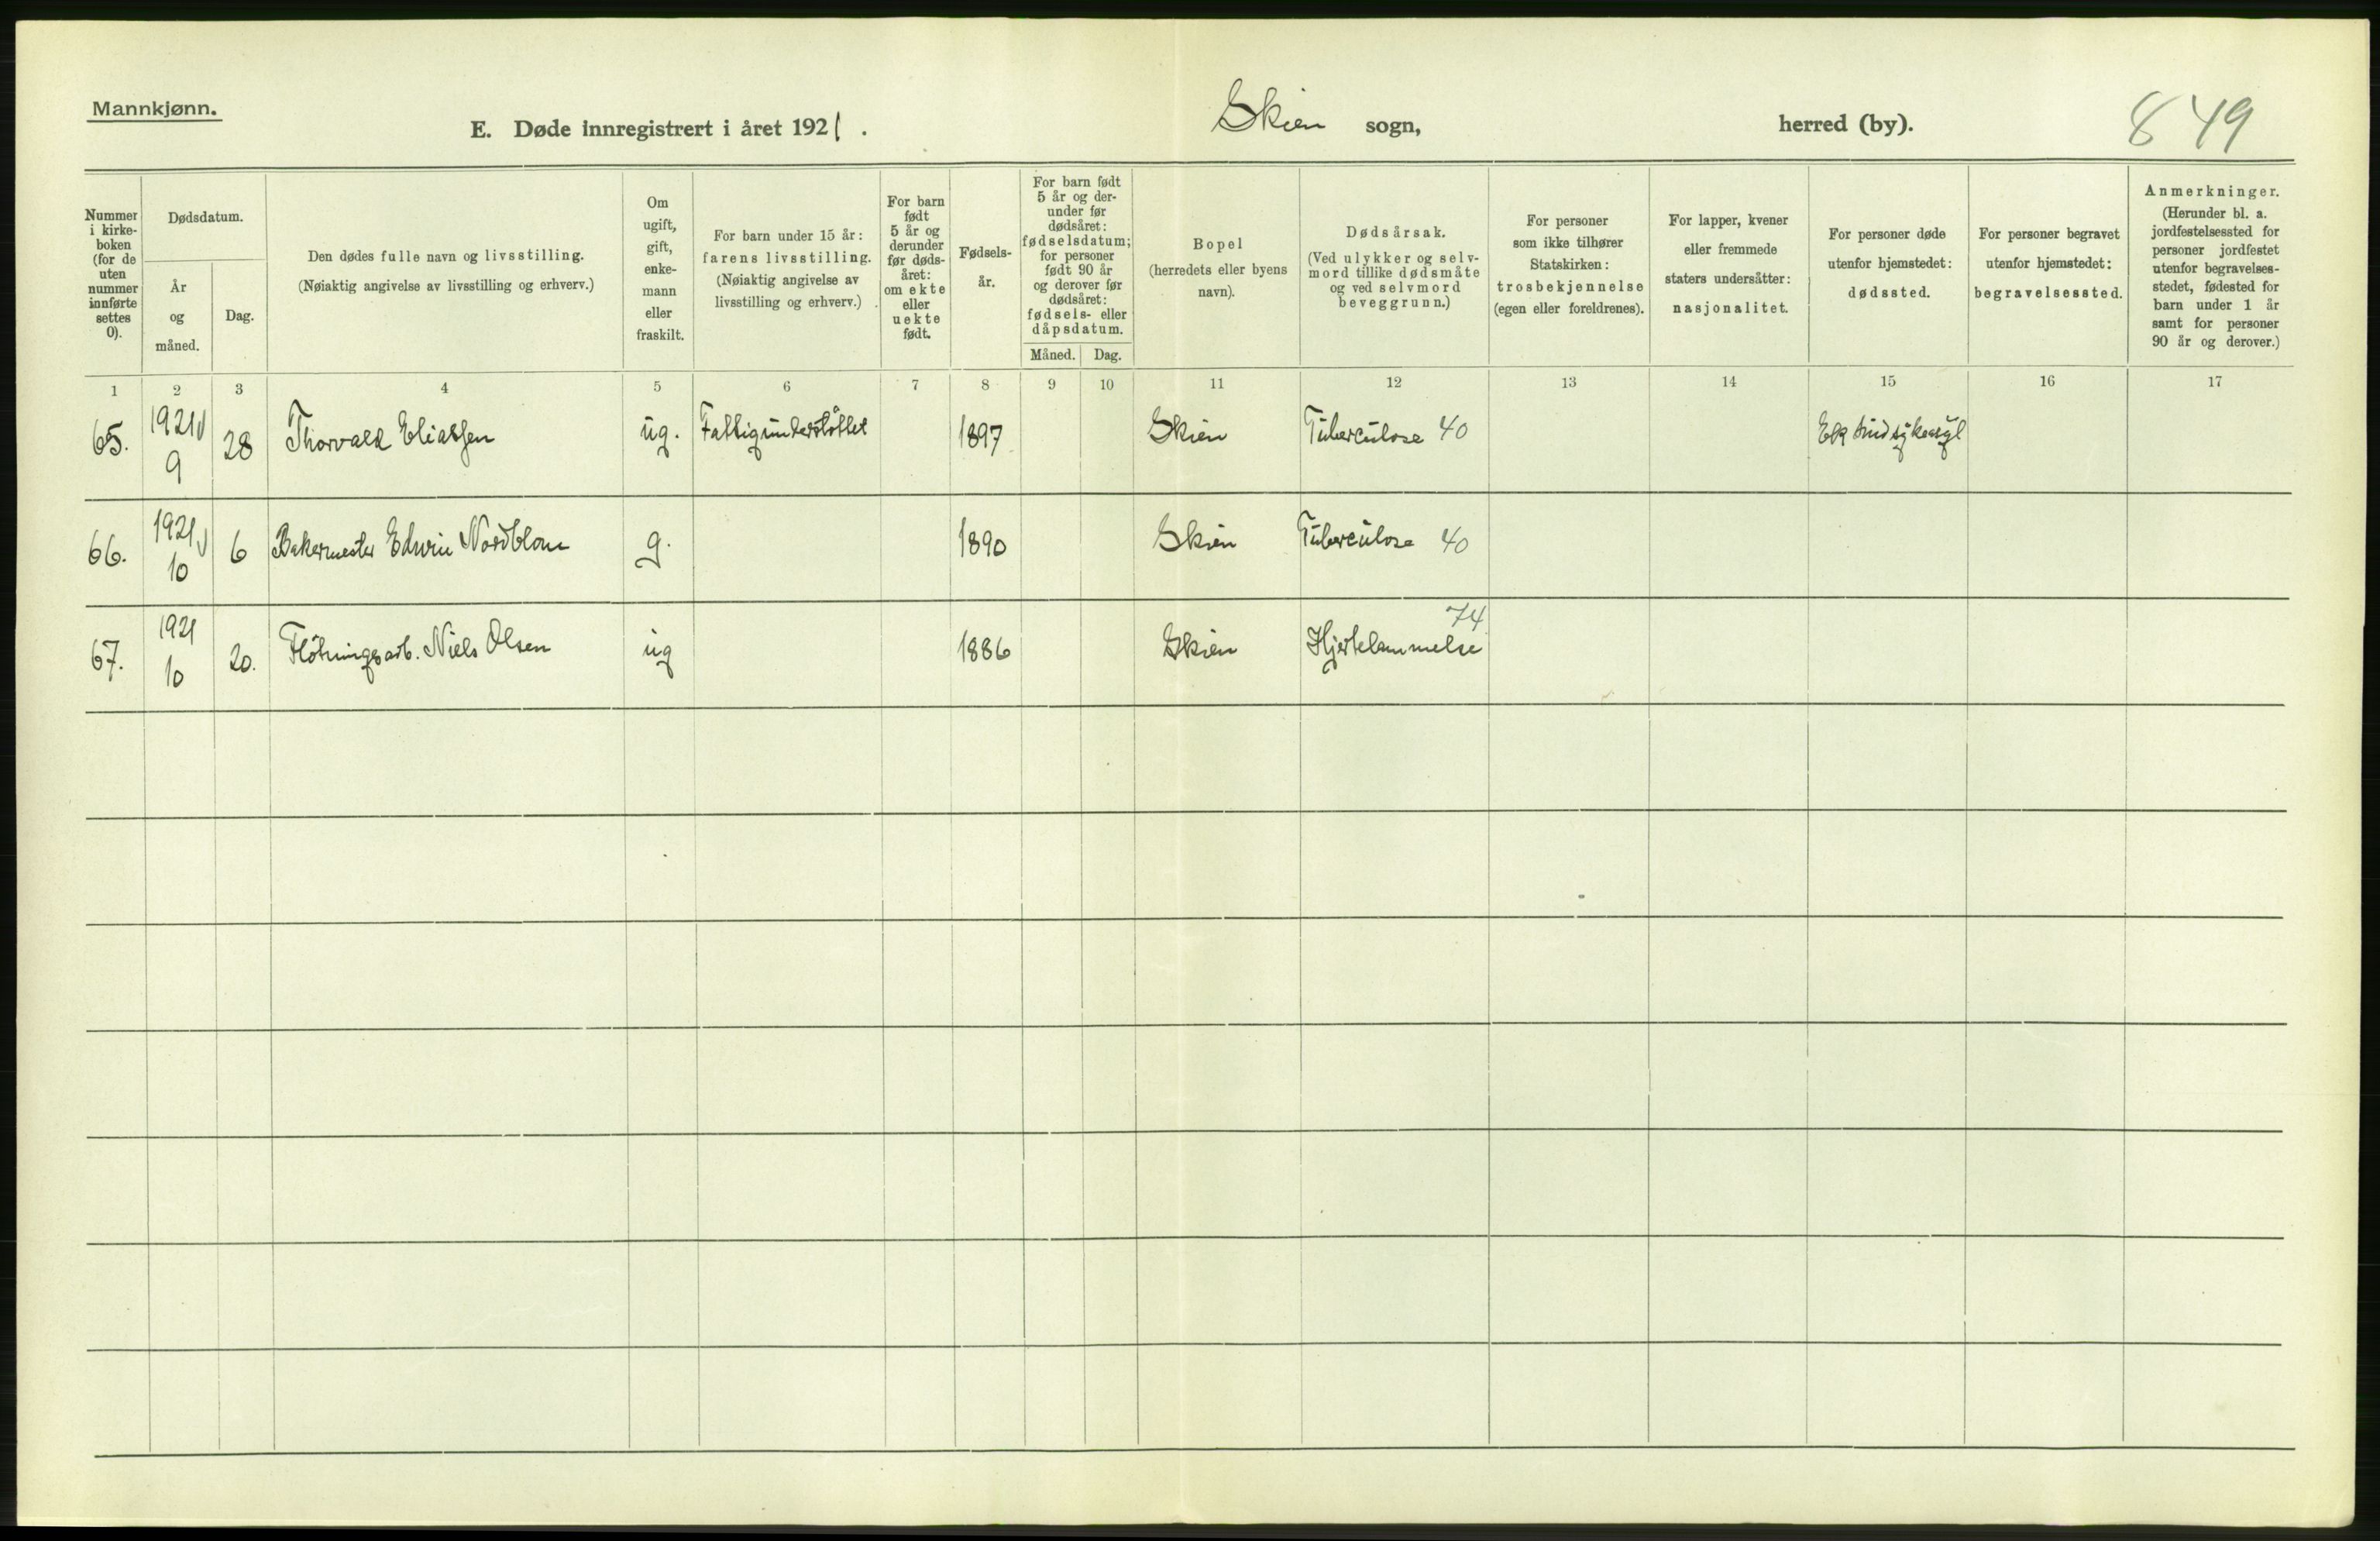 Mannkjønn.
E. Døde innregistrert i året 1921. Skien sogn, herred (by). 849
Nummer i kirkeboken (for de uten nummer innførte settes 0).
Dødsdatum.
År og måned.
Dag.
Den dødes fulle navn og livsstilling.
(Nøiaktig angivelse av livsstilling og erhverv.)
Om ugift, gift, enkemann eller fraskilt.
For barn under 15 år: farens livsstilling.
(Nøiaktig angivelse av livsstilling og erhverv.)
For barn født 5 år og derunder før dødsåret: om ekte eller uekte født.
Fødselsår.
For barn født 5 år og derunder før dødsåret: fødselsdatum; for personer født 90 år og derover før dødsåret: fødsels- eller dåpsdatum.
Måned. Dag.
Bopel
(herredets eller byens navn).
Dødsårsak.
(Ved ulykker og selvmord tillike dødsmåte og ved selvmord beveggrunn.)
For personer som ikke tilhører Statskirken: trosbekjennelse (egen eller foreldrenes).
For lapper, kvener eller fremmede staters undersåtter: nasjonalitet.
For personer døde utenfor hjemstedet: dødssted.
For personer begravet utenfor hjemstedet: begravelsessted.
Anmerkninger.
(Herunder bl. a. jordfestelsessted for personer jordfestet utenfor begravelsesstedet, fødested for barn under 1 år samt for personer 90 år og derover.)
1 2 3 4 5 6 7 8 9 10 11 12 13 14 15 16 17
65. 1921 9 28 Thorvald Eliassen ug. Fattigunderstøttet 1897 Skien Tuberculose 40
66. 1921 10 6 Bakermester Edwin Nordblom g. 1890 Skien Tuberculose 40
67. 1921 10 20. Fløtningsarb. Niels Olsen ug 1886 Skien Hjertelammelse 74